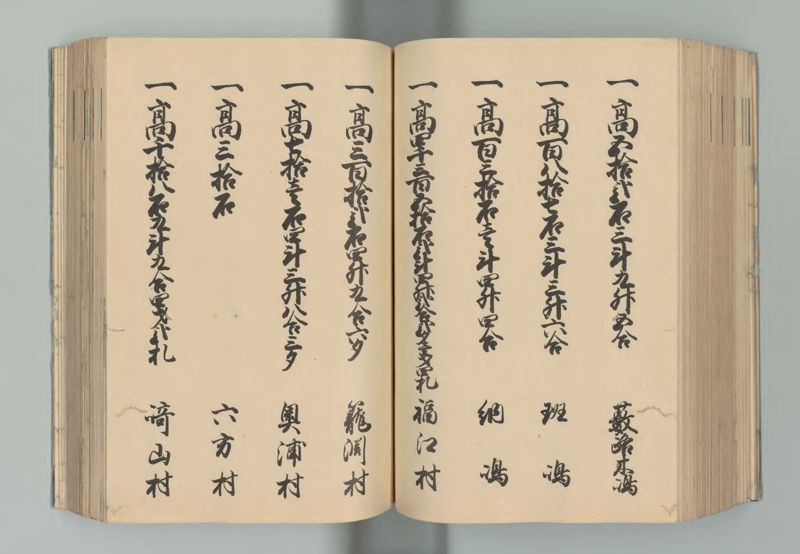 一高五拾弐石三斗九升五合 藪路木嶋
一高百八拾七石三斗三升六合 班嶋
一高百三拾石壱斗四升四合 納嶋
一高四千三百五拾石 福江村
一高三百拾弐石四升九合六夕 籠淵村
一高七拾壱石四斗三升八合三夕 奥浦村
一高三拾石 六方村
一高千拾八石九斗九合四夕弐札 崎山村